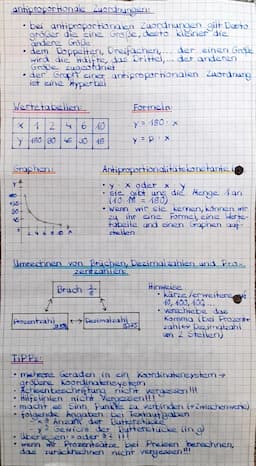 antiproportionale Zuordnungen:
• bei antiproportionalen Zuordnungen gilt: Desto
größer die eine Größe, desto kleiner die
andere Größe
• dem Doppelten, Dreifachen,... der einen Größe
wird die Hälfte, das Drittel,... der anderen
Größe zugeordnet
• der Graph einer antiproportionalen Zuordnung
ist eine Hyperbel
Wertetabellen: Formeln:
x 1 2 4 6 10
y = 180 : x
y 180 90 45 30 18
y = p : x
Graphen: Antiproportionalitätskonstante
• y x oder x y
• sie gibt uns die Menge 1 an
(10 · 18 = 180)
• wenn wir sie kennen, können wir
zu ihr eine Formel, eine Werte-
tabelle und einen Graphen auf-
stellen
Umrechnen von Brüchen, Dezimalzahlen und Pro-
zentzahlen:
Bruch Hinweise:
• kürze/erweitere
10, 100,
• verschiebe das
Prozentzahl Dezimalzahl
Komma (bei Prozent-
zahl Dezimalzahl
um 2 Stellen)
TIPPS:
• mehrere Geraden in ein Koordinatensystem →
größere Koordinatensystem
• Achsenbeschriftung nicht vergessen!!!
• Hilfslinien nicht vergessen!!!
• macht es Sinn Punkte zu verbinden (→ Zwischenwerte)
• folgende Angaben bei Textaufgaben
x = Anzahl der Butterstücke
y = Gewicht der Butterstücke (in g)
• überlegen: oder !!!
• wenn wir Prozentsätze bei Preisen berechnen,
das zurückrechnen nicht vergessen!!!